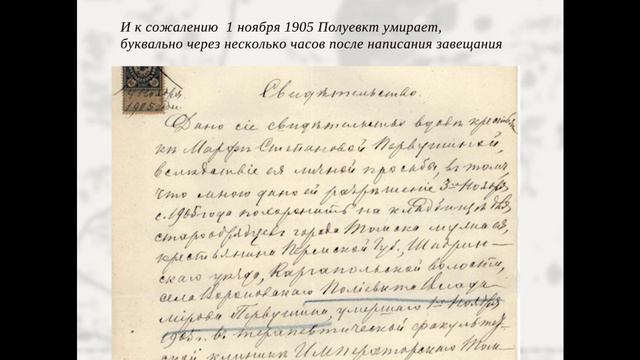 И к сожалению 1 ноября 1905 Полуевкт умирает,
буквально через несколько часов после написания завещания
4 Ноября
1905 годи
Свидѣтельство.
Дано сіе свидѣтельство вдовѣ крестьян
ки Марфѣ Степановой Первушиной,
вслѣдствіе ея личной просьбы, въ томъ,
что мною дано ей разрѣшеніе 3го Ноября
с. 1905 года похоронить на кладбищѣ
старообрядцевъ города Томска мужа ея,
крестьянина Пермской Губ., Шадрин-
скаго уѣзда, Каргапольской волости,
села Вороновскаго Поліевкта Влади
мірова Первушина, умершаго 1го Ноября
1905 г. въ терапевтической факультет
ской клиникѣ Императорскаго Том